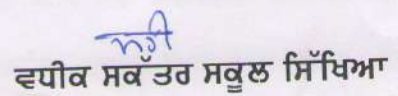 ਸਹੀ
ਵਧੀਕ ਸਕੱਤਰ ਸਕੂਲ ਸਿੱਖਿਆ